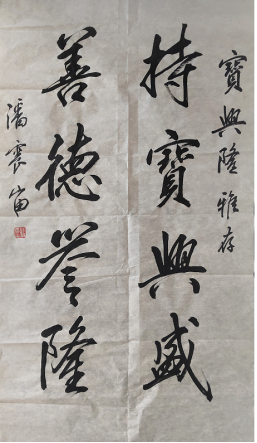 寶興隆雅存
持寶興盛
善德譽隆
潘震宙